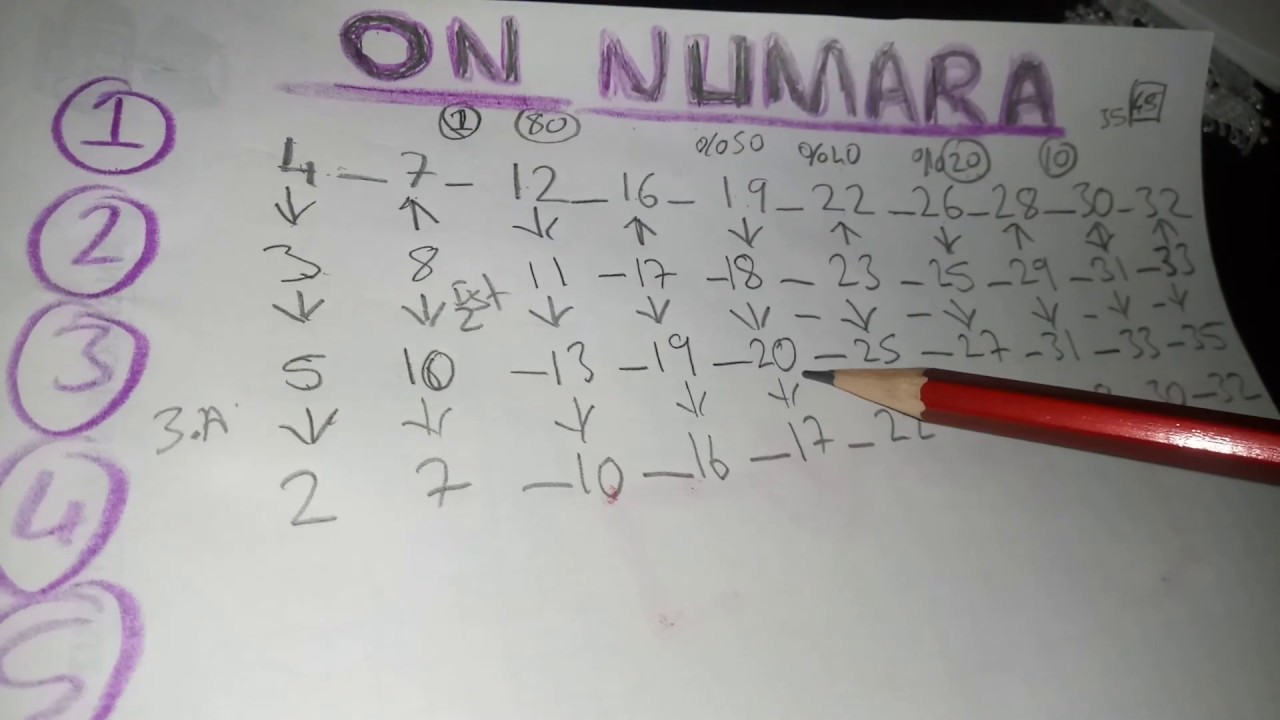 ON NUMARA
1 80 %50 %40 %20 10 35 45
1 4 - 7 - 12 - 16 - 19 - 22 - 26 - 28 - 30 - 32
2 3 8 11 - 17 - 18 - 23 - 25 - 29 - 31 - 33
3 5 10 - 13 - 19 - 20 - 25 - 27 - 31 - 33 - 35
3.A
30 - 32
4 2 7 - 10 - 16 - 17 - 22
5